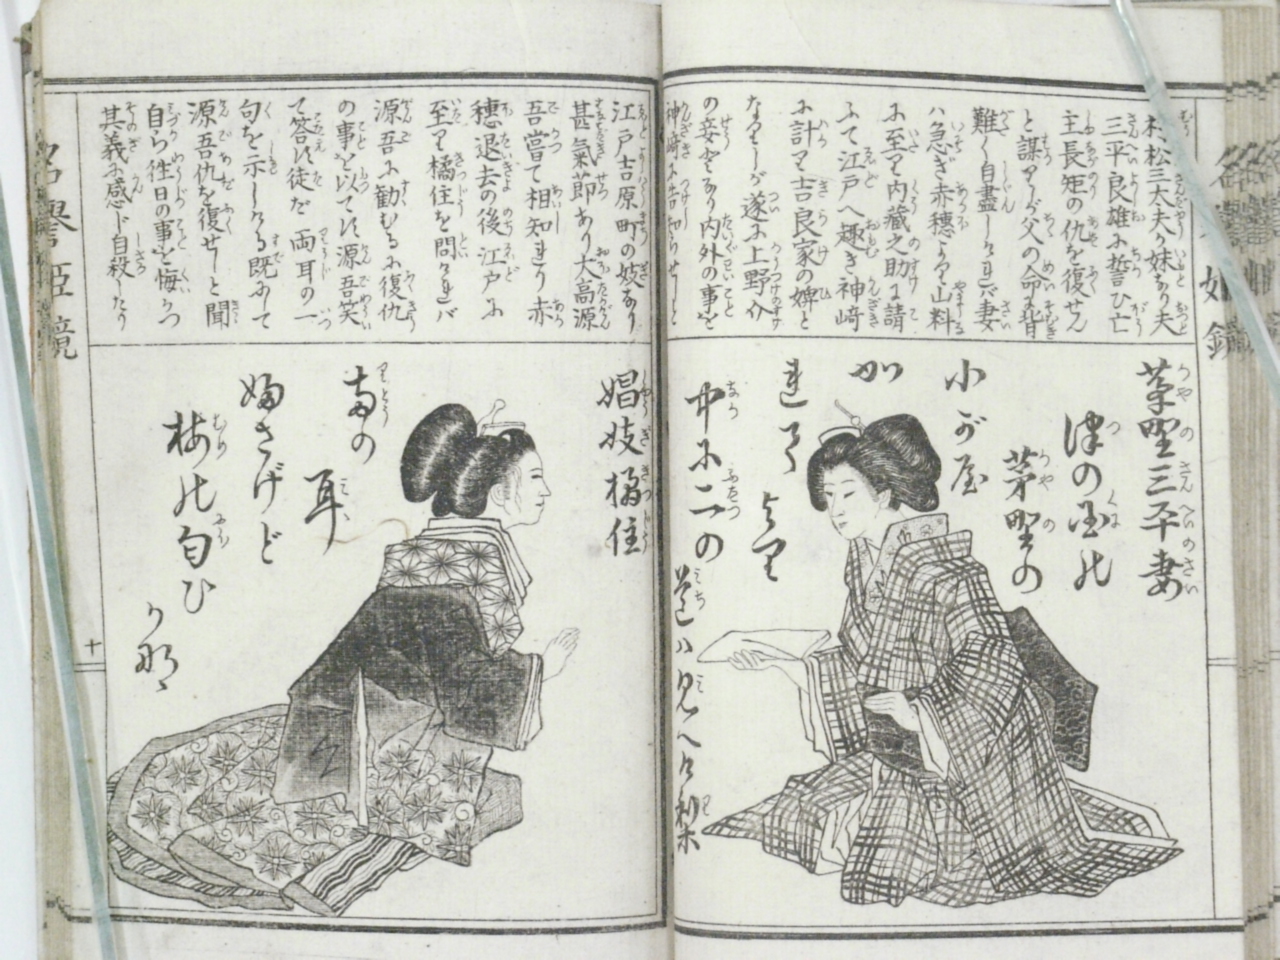 村松三太夫が妹なり夫
三平良雄に誓ひ亡
主長矩の仇を復せん
と謀しが父の命に背
難く自盡しければ妻
ハ急ぎ赤穂なる山科
に至り内藏之助に請
ふて江戸へ趣き神崎
に計り吉良家の婢と
なりしが遂に上野介
の妾となり内外の事を
神崎に告知らせしと
茅野三平妻
津の国の
茅野の
小が屋
かれて
より
中に二つの
道ハ見へ
江戸吉原町の妓なり
甚氣節あり大高源
吾嘗て相知れり赤
穂退去の後江戸に
至り橘住を問ければ
源吾に勧むるに復仇
の事を以てす源吾笑
て答ず徒だ両耳の一
句を示しける既にして
源吾仇を復せしと聞
自ら徃日の事を悔かつ
其義に感じ自殺したり
娼妓橘住
両の
耳
婦さげど
梅の匂ひ
か那
名譽姫鏡
十